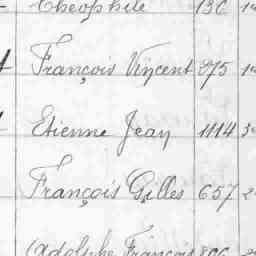 Théophile 130
François Vincent 875
Etienne Jean 1114
François Gilles 657
Adolphe François 806